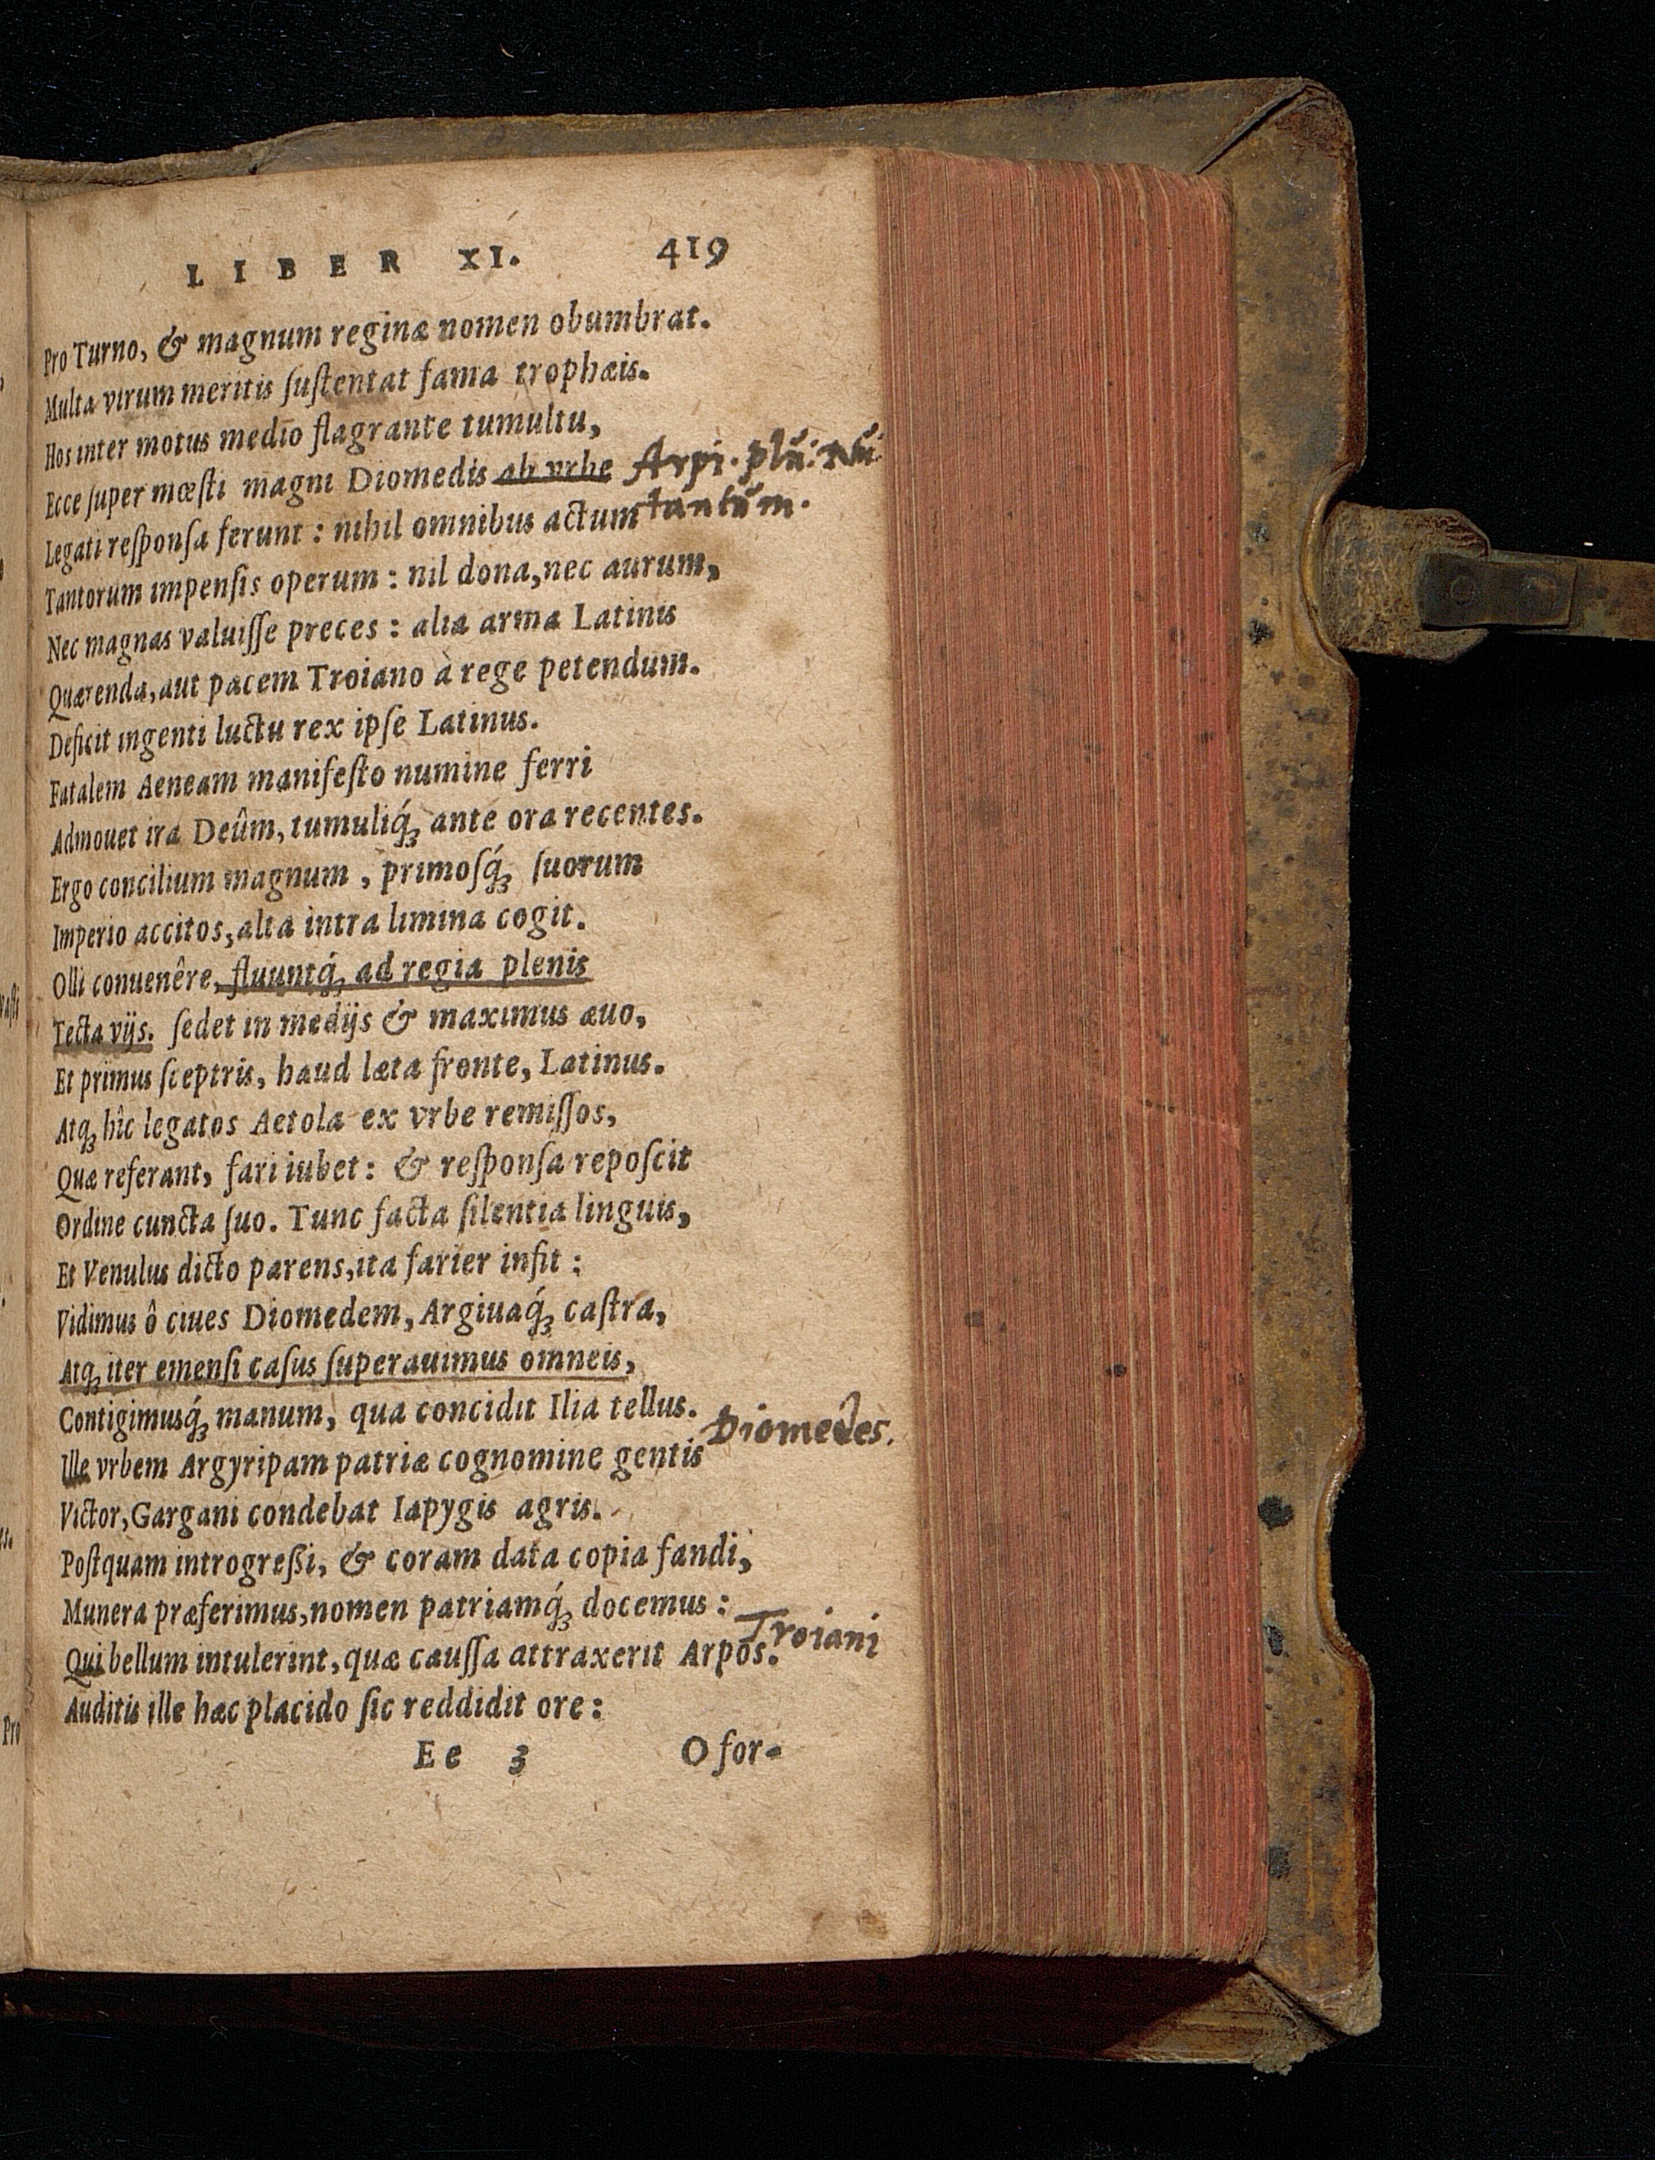 LIBER XI. 419
Pro Turno, & magnum reginæ nomen obumbrat.
Multa virum meritis ſuſtentat fama trophæis.
Hos inter motus medio flagrante tumultu,
Ecce ſuper mœſti magni Diomedis ab vrbe Arpi. plū: Nū:
Legati reſponſa ferunt: nihil omnibus actum tantūm.
Tantorum impenſis operum: nil dona, nec aurum,
Nec magnas valuiſſe preces: alia arma Latinis
Quærenda, aut pacem Troiano à rege petendum.
Deficit ingenti luctu rex ipſe Latinus.
Fatalem Aeneam manifeſto numine ferri
Admouet ira Deûm, tumuliq́ꝫ ante ora recentes.
Ergo concilium magnum, primoſq́ꝫ ſuorum
Imperio accitos, alta intra limina cogit.
Olli conuenêre, fluuntq́ꝫ ad regia plenis
Tecta vijs. ſedet in medijs & maximus æuo,
Et primus ſceptris, haud læta fronte, Latinus.
Atqꝫ hîc legatos Aetola ex vrbe remiſſos,
Quæ referant, fari iubet: & reſponſa repoſcit
Ordine cuncta ſuo. Tunc facta ſilentia linguis,
Et Venulus dicto parens, ita farier infit:
Vidimus ô ciues Diomedem, Argiuaq́ꝫ caſtra,
Atqꝫ iter emenſi caſus ſuperauimus omneis,
Contigimusq́ꝫ manum, qua concidit Ilia tellus.
Diomedes.
Ille vrbem Argyripam patriæ cognomine gentis
Victor, Gargani condebat Iapygis agris.
Poſtquam introgreßi, & coram data copia fandi,
Munera præferimus, nomen patriamq́ꝫ docemus:
Troiani
Qui bellum intulerint, quæ cauſſa attraxerit Arpos.
Auditis ille hæc placido ſic reddidit ore:
Ee 3 O for-
Pro